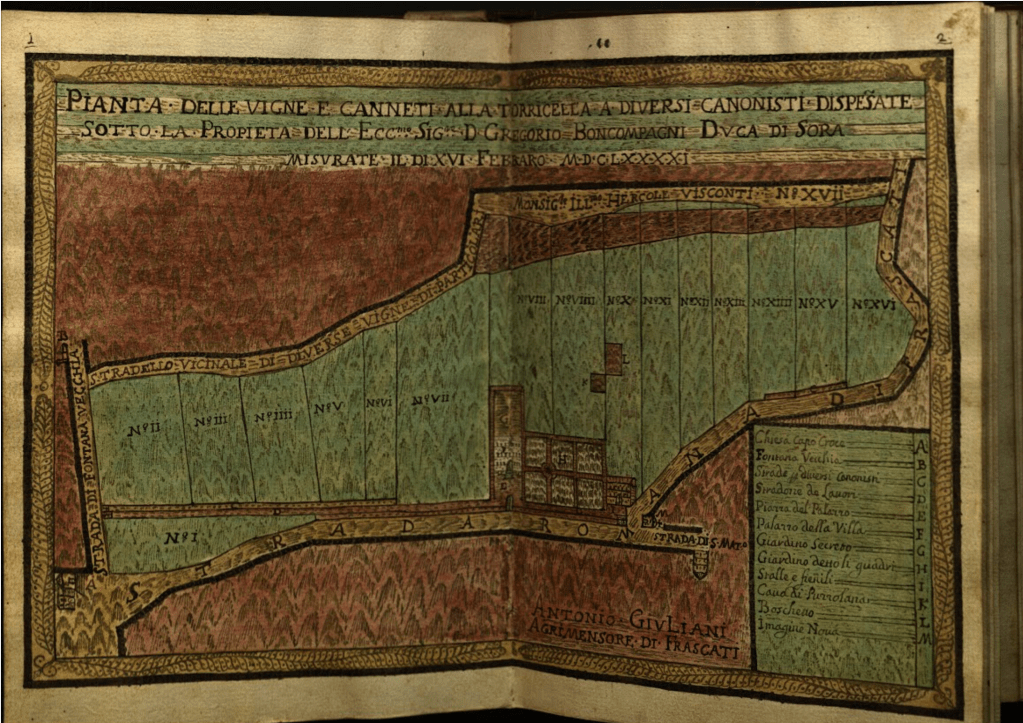 1
2
PIANTA · DELLE · VIGNE · E · CANNETI · ALLA · TORRICELLA · A · DIVERSI = CANONISTI · DISPEÑSATE
SOTTO · LA · PROPIETA · DELL' ECC.mo SIG.re D. GREGORIO = BONCOMPAGNI DUCA · DI · SORA
MISURATE · IL · DI · XVI · FEBBARO · M·D·C·LXX·XXI
MONSIG.re ILL.mo HERCOLE · VISCONTI · Nº XVII
STRADELLO · VICINALE · DI · DIVERSE · VIGNE · DI · PARTICOLARI
STRADA · DI · FONTANA VECCHIA
Nº VIII Nº VIIII Nº X Nº XI Nº XII Nº XIII Nº XIIII Nº XV Nº XVI
Nº II Nº III Nº IIII Nº V Nº VI Nº VII
Nº I
B
L
K
H
C D
M
A
STRADA DI S. MAT.o
STRADA DA RONCATI
Chiesa Capo Croce A
Fontana Vecchia B
Strade p diversi Canonisti C
Stradone da Lavori D
Piazza del Palazzo E
Palazzo della Villa F
Giardino Secreto G
Giardino detto li quadri H
Stalle e fienili I
Caua di Puzzolana K
Boschetto L
Imagine Nova M
ANTONIO · GIULIANI
AGRIMENSORE · DI · FRASCATI